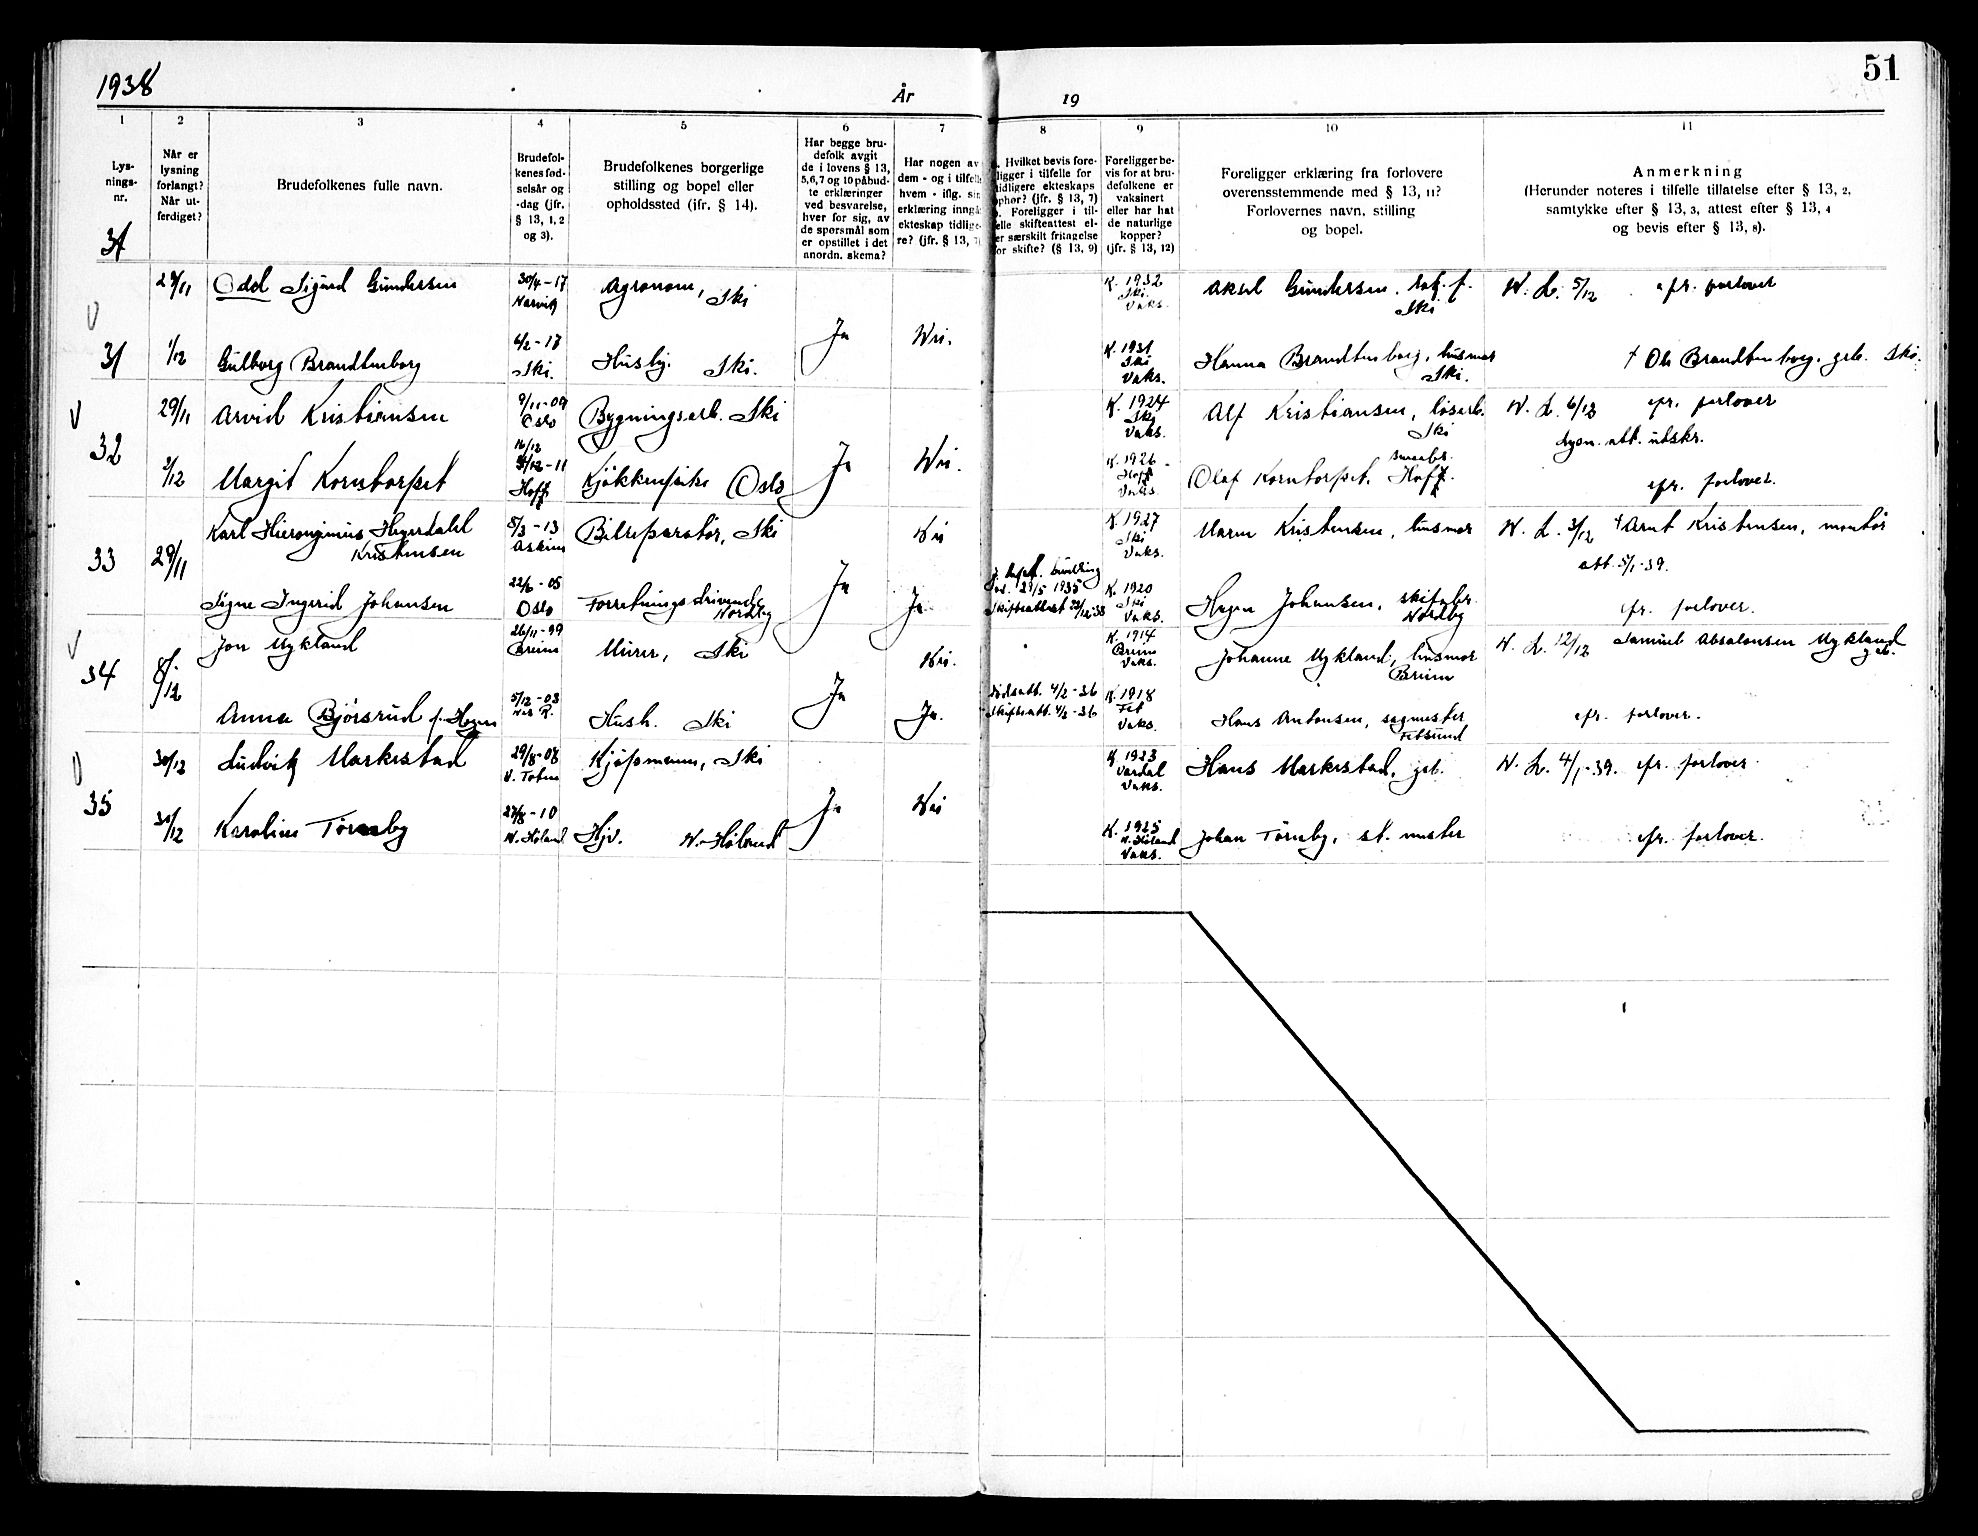 1938
År
19
51
1
2
3
4
5
6
7
8
9
10
11
Lys-
nings-
nr.
Når er
lysning
forlangt?
Når ut-
ferdiget?
Brudefolkenes fulle navn.
Brudefol-
kenes fød-
selsår og
-dag (jfr.
§ 13, 1, 2
og 3).
Brudefolkenes borgerlige
stilling og bopel eller
opholdssted (jfr. § 14).
Har begge bru-
defolk avgit
de i lovens § 13,
5,6,7 og 10 påbud-
te erklæringer
ved besvarelse,
hver for sig, av
de spørsmål som
er opstillet i det
anordn. skema?
Har nogen av
dem - og i tilfelle
hvem - iflg. sin
erklæring inngå
ekteskap tidlige-
re? (jfr. § 13, 7)
Hvilket bevis fore-
ligger i tilfelle for
tidligere ekteskaps
ophør? (jfr. § 13, 7)
Foreligger i til-
felle skifteattest el-
ler særskilt fritagelse
for skifte? (§ 13, 9)
Foreligger be-
vis for at bru-
defolkene er
vaksinert
eller har hat
de naturlige
kopper?
(jfr. § 13, 12)
Foreligger erklæring fra forlovere
overensstemmende med § 13, 11?
Forlovernes navn, stilling
og bopel.
Anmerkning
(Herunder noteres i tilfelle tillatelse efter § 13, 2,
samtykke efter § 13, 3, attest efter § 13, 4
og bevis efter § 13, 8).
31
29/11 Odd Sigurd Gundersen 30/4-17 Narvik Agronom, Ski K. 1932 Ski Vaks. Aksel Gundersen, Ski N. L. 5/12 efr. forlover
V
31 1/12 Gulborg Brandtenborg 4/2-17 Ski. Husby. Ski. Ja Nei. K. 1931 Ski Vaks. Hanna Brandtenborg, husmor Ski. † Ole Brandtenborg, Ski.
V
29/11 Arvid Kristiansen 9/11-09 Oslo Bygningsarb. Ski K. 1924 Ski Vaks. Alf Kristiansen, løsarb. Ski N. L. 6/12 efr. forlover
att. utskr.
32 2/12 Margit Korntorpet 16/12 -11 Hoff Kjøkkenpike Oslo Ja Nei. K. 1926 Hoff Vaks. Olaf Korntorpet, Hoff. efr. forlover.
33 29/11 Karl Hieronymus Hegerdahl Kristensen 5/3-13 Askim Bilreparatør, Ski Ja Nei K. 1927 Ski Vaks. Maren Kristensen, husmor N. L. 3/12 † Arnt Kristensen, montør
att. 5/1-39.
Signe Ingerid Johansen 22/6-05 Oslo Forretningsdrivende Nordby Ja. 29/5 1935 Skifteattest K. 1920 Ski Vaks. Hagen Johansen, Nordby efr. forlover.
V
34 8/12 Jon Mykland 26/11-99 Breim Murer, Ski Ja Nei. K. 1914 Breim Vaks. Johanne Mykland, husmor Breim N. L. 12/12 Samuel Absalonsen Mykland
Anna Bjørsrud f. Hagen 5/12-03 Nes R. Hush. Ski Ja. Dødsatt. 4/2-36 Skifteatt. 4/2-36 K. 1918 Fet Vaks. Hans Antonsen, sagmester Fetsund efr. forlover.
V
35 30/12 Ludvik Markestad 29/8-08 V. Toten Kjøpmann, Ski K. 1923 Vardal Vaks. Hans Markestad, N. L. 4/1-39. efr. forlover
30/12 Karoline Tørnby 27/8-10 N. Høland Hjv. N. Høland Ja Nei K. 1925 N. Høland Vaks. Johan Tørnby, st. mester efr. forlover.